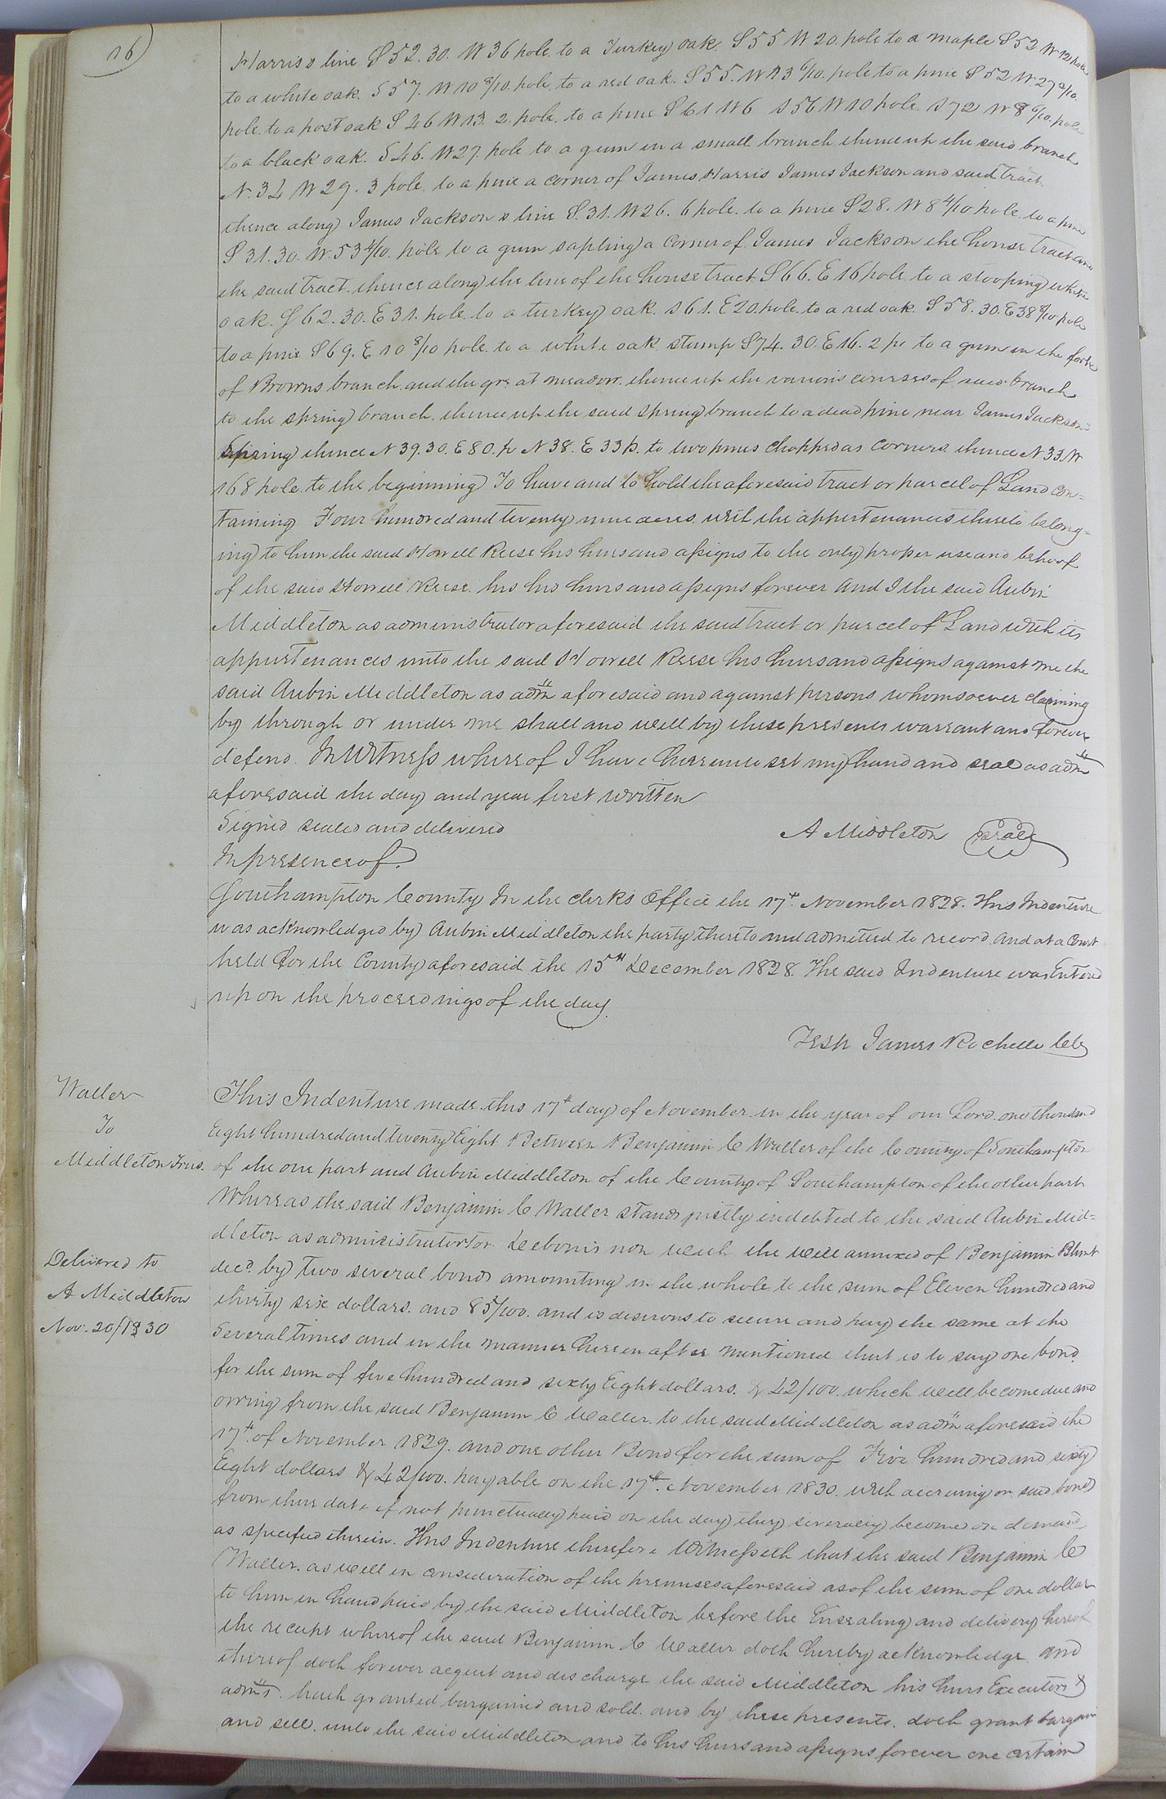 16
Harris's line S 52. 30. W 36 pole to a Turkey oak. S 55 W 20. pole to a maple S 52 W
to a white oak. S 57. W 10 pole to a red oak. S 55. W 13 pole to a pine S 52 W 27
pole to a post oak S 46 W 13. 2. pole to a pine S 61 W 6 S 56 W 10 pole S 72 W 8 pole
to a black oak. S 46. W 27. pole to a gum in a small branch thence up the said branch
N. 34 W 29. 3 pole. to a pine a corner of James Harris James Jackson and said tract
thence along James Jackson's line S. 31. W 26. 6 pole. to a pine S 28. W 8 4/10 pole to a pine
S 31. 30. W. 53 4/10. pole to a gum sapling a corner of James Jackson the house tract and
the said tract. thence along the line of the house tract S 66. E 16 pole. to a stooping white
oak. S 62. 30. E 31. pole. to a turkey oak. S 61. E 20. pole to a red oak. S 58. 30. E 38 pole
to a pine S 69. E 10 pole to a white oak stump S 74. 30. E 16. 2 po to a gum in the fork
of Browns branch. and the great meadow. thence up the various courses of said branch
to the spring branch. thence up the said spring branch to a dead pine near James Jacksons
Spring thence N 39. 30. E 80. p N 38. E 33 p. to two pines chopped as corners. thence N 33. W
168 pole. to the beginning To have and to hold the aforesaid tract or parcel of Land con-
taining Four hundred and twenty nine acres with the appurtenances thereto belong-
ing to him the said Howell Reese his heirs and assigns to the only proper use and behoof
of the said Howell Reese. his his heirs and assigns forever and I the said Aubin
Middleton as administrator aforesaid the said tract or parcel of Land with its
appurtenances unto the said Howell Reese his heirs and assigns against me the
said Aubin Middleton as adm aforesaid and against persons whomsoever claiming
by through or under me shall and will by these presents warrant and forever
defend. In Witness whereof I have hereunto set my hand and seal as adm
aforesaid the day and year first written
Signed sealed and delivered A Middleton Seal
In presence of.
Southampton County In the clerks Office the 17th. November 1828. This Indenture
was acknowledged by Aubin Middleton the party thereto and admitted to record. and at a Court
held for the County aforesaid the 15th December 1828 The said Indenture was Entered
up on the proceedings of the day.
Teste James Rochelle Clk
Waller
To
Middleton Trus.
Delivered to
A Middleton
Nov. 20/1830
This Indenture made this 17th day of November in the year of our Lord one thousand
Eight hundred and twenty Eight Between Benjamin C Waller of the County of Southampton
of the one part and Aubin Middleton of the County of Southampton of the other part
Whereas the said Benjamin C Waller stands justly indebted to the said Aubin Mid-
dleton as administrator Debonis non with the will annexed of Benjamin Blunt
decd. by two several bonds amounting in the whole to the sum of Eleven hundred and
thirty six dollars. and 85/100. and is desirous to secure and pay the same at the
Several times and in the manner herein after mentioned that is to say one bond
for the sum of five hundred and sixty Eight dollars. & 42/100. which will become due and
owing from the said Benjamin C Waller. to the said Middleton as adm aforesaid the
17th. of November 1829. and one other Bond for the sum of Five hundred and sixty
Eight dollars & 42/100. payable on the 17th. November 1830. with accruing on said bonds
from this date if not punctually paid on the day they severally become on demand
as specified therein. This Indenture therefore Witnesseth that the said Benjamin C
Waller. as well in consideration of the premises aforesaid as of the sum of one dollar
to him in hand paid by the said Middleton before the Ensealing and delivery hereof
the receipt whereof the said Benjamin C Waller doth hereby acknowledge and
thereof doth forever acquit and discharge the said Middleton his heirs Executors &
adms. hath granted bargained and sold. and by these presents. doth grant bargain
and sell. unto the said Middleton and to his heirs and assigns forever one certain